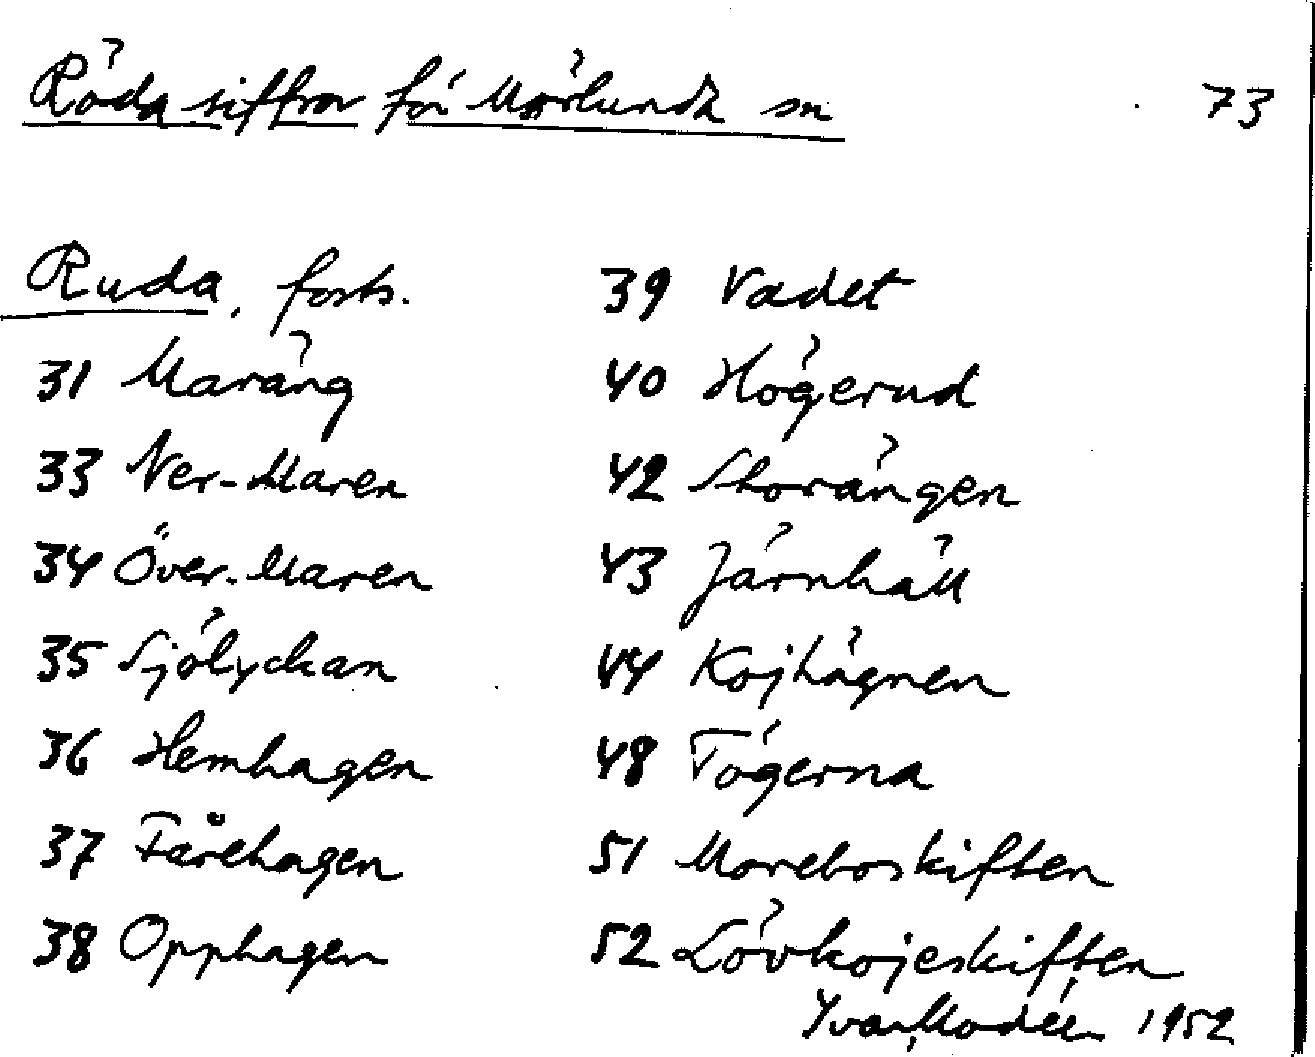 Röda siffror för Mörlunda sn 73
Ruda, forts.
31 Maräng
33 Ner-Maren
34 Över-Maren
35 Sjölyckan
36 Hemhagen
37 Fårehagen
38 Opphagen
39 Vadet
40 Högerud
42 Storängen
43 Järnhäll
44 Kojhägnen
48 Tögerna
51 Moreboskiften
52 Lövkojeskiften
Yvar Modéer 1952